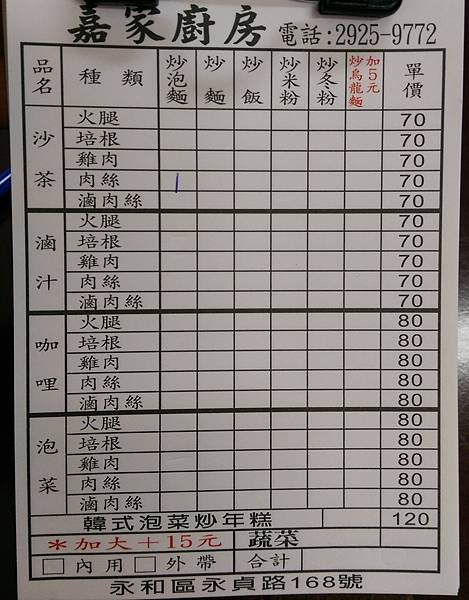 嘉家廚房 電話:2925-9772
品名 種類 炒泡麵 炒麵 炒飯 炒米粉 炒冬粉 炒烏龍麵加5元 單價
沙茶
火腿 70
培根 70
雞肉 70
肉絲 70
滷肉絲 70
滷汁
火腿 70
培根 70
雞肉 70
肉絲 70
滷肉絲 70
咖哩
火腿 80
培根 80
雞肉 80
肉絲 80
滷肉絲 80
泡菜
火腿 80
培根 80
雞肉 80
肉絲 80
滷肉絲 80
韓式泡菜炒年糕 120
*加大+15元 蔬菜
內用 外帶 合計
永和區永貞路168號